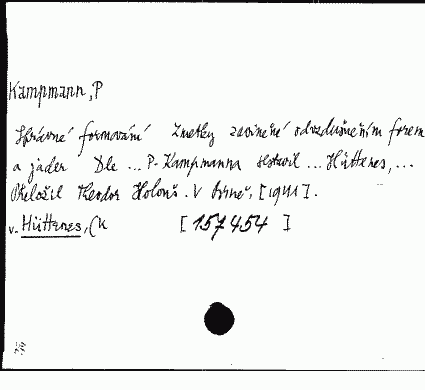 Kampmann, P
Správné formování Zmetky zaviněné odvzdušněním forem
a jader Dle ... P. Kampmanna sestavil ... Hüttenes, ...
Přeložil Theodor Holouš. V Brně, [1941].
v. Hüttenes, (K [157454]